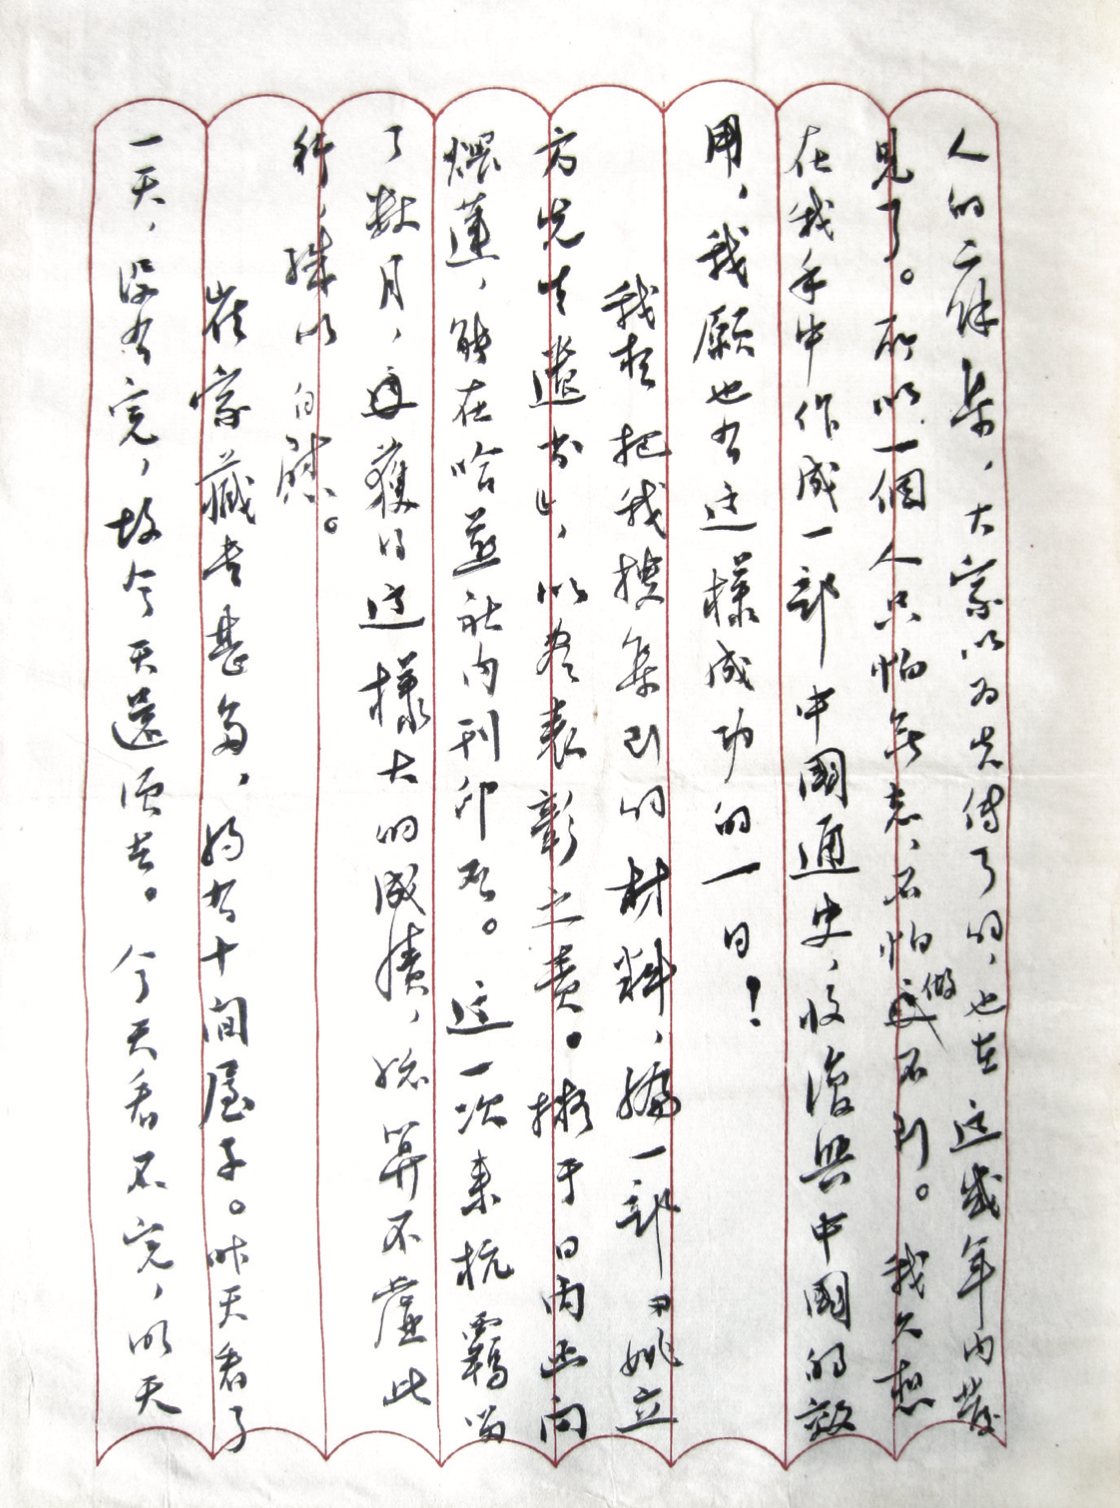 人的二餘集，大家以为失传了的，也在这幾年内發
見了。所以一個人只怕無志，不怕做不到。我久想
在我手中作成一部中國通史，收復興中國的效
用，我願也有这樣成功的一日！
我想把我搜集到的材料，編一部「姚立
方先生遺书」，以尽表彰之責。擬于日内函问
煨蓮，能在哈燕社内刊印否。这一次来杭羈留
了數月，而獲得这樣大的成績，总算不虚此
行，殊以自慰。
崔家藏书甚多，约有十间屋子。昨天看了
一天，没有完，故今天還须去。今天看不完，明天